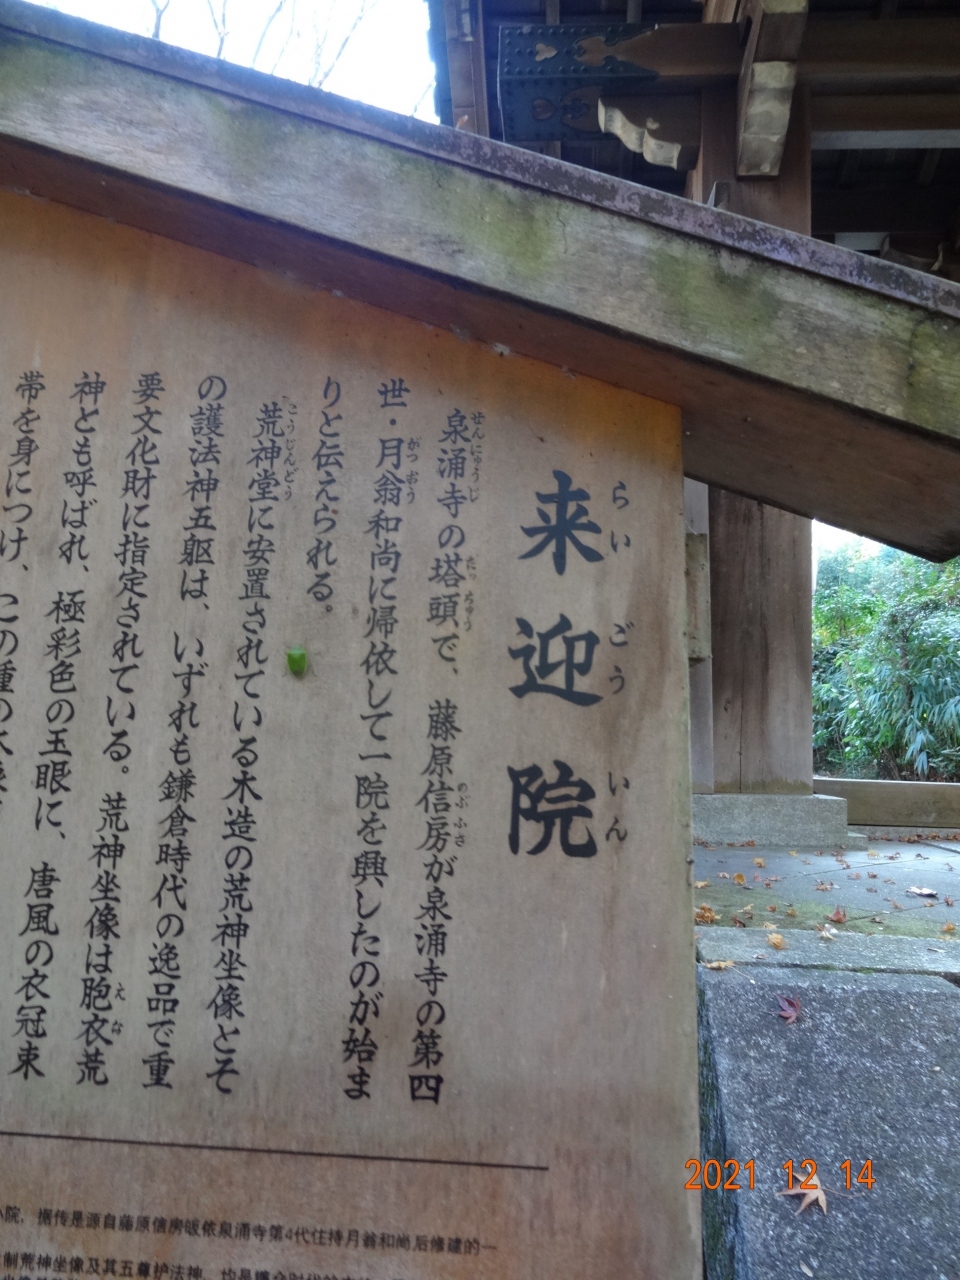 来迎院
らいごういん
泉涌寺の塔頭で、藤原信房が泉涌寺の第四
せんにゅうじ たっちゅう のぶふさ
世・月翁和尚に帰依して一院を興したのが始ま
がつおう
りと伝えられる。
荒神堂に安置されている木造の荒神坐像とそ
こうじんどう
の護法神五躯は、いずれも鎌倉時代の逸品で重
要文化財に指定されている。荒神坐像は胞衣荒
えな
神とも呼ばれ、極彩色の玉眼に、唐風の衣冠束
帯を身につけ、この種の
院，据传是源自藤原信房皈依泉涌寺第4代住持月翁和尚后修建的一
制荒神坐像及其五尊护法神，均是镰仓时代的
2021 12 14